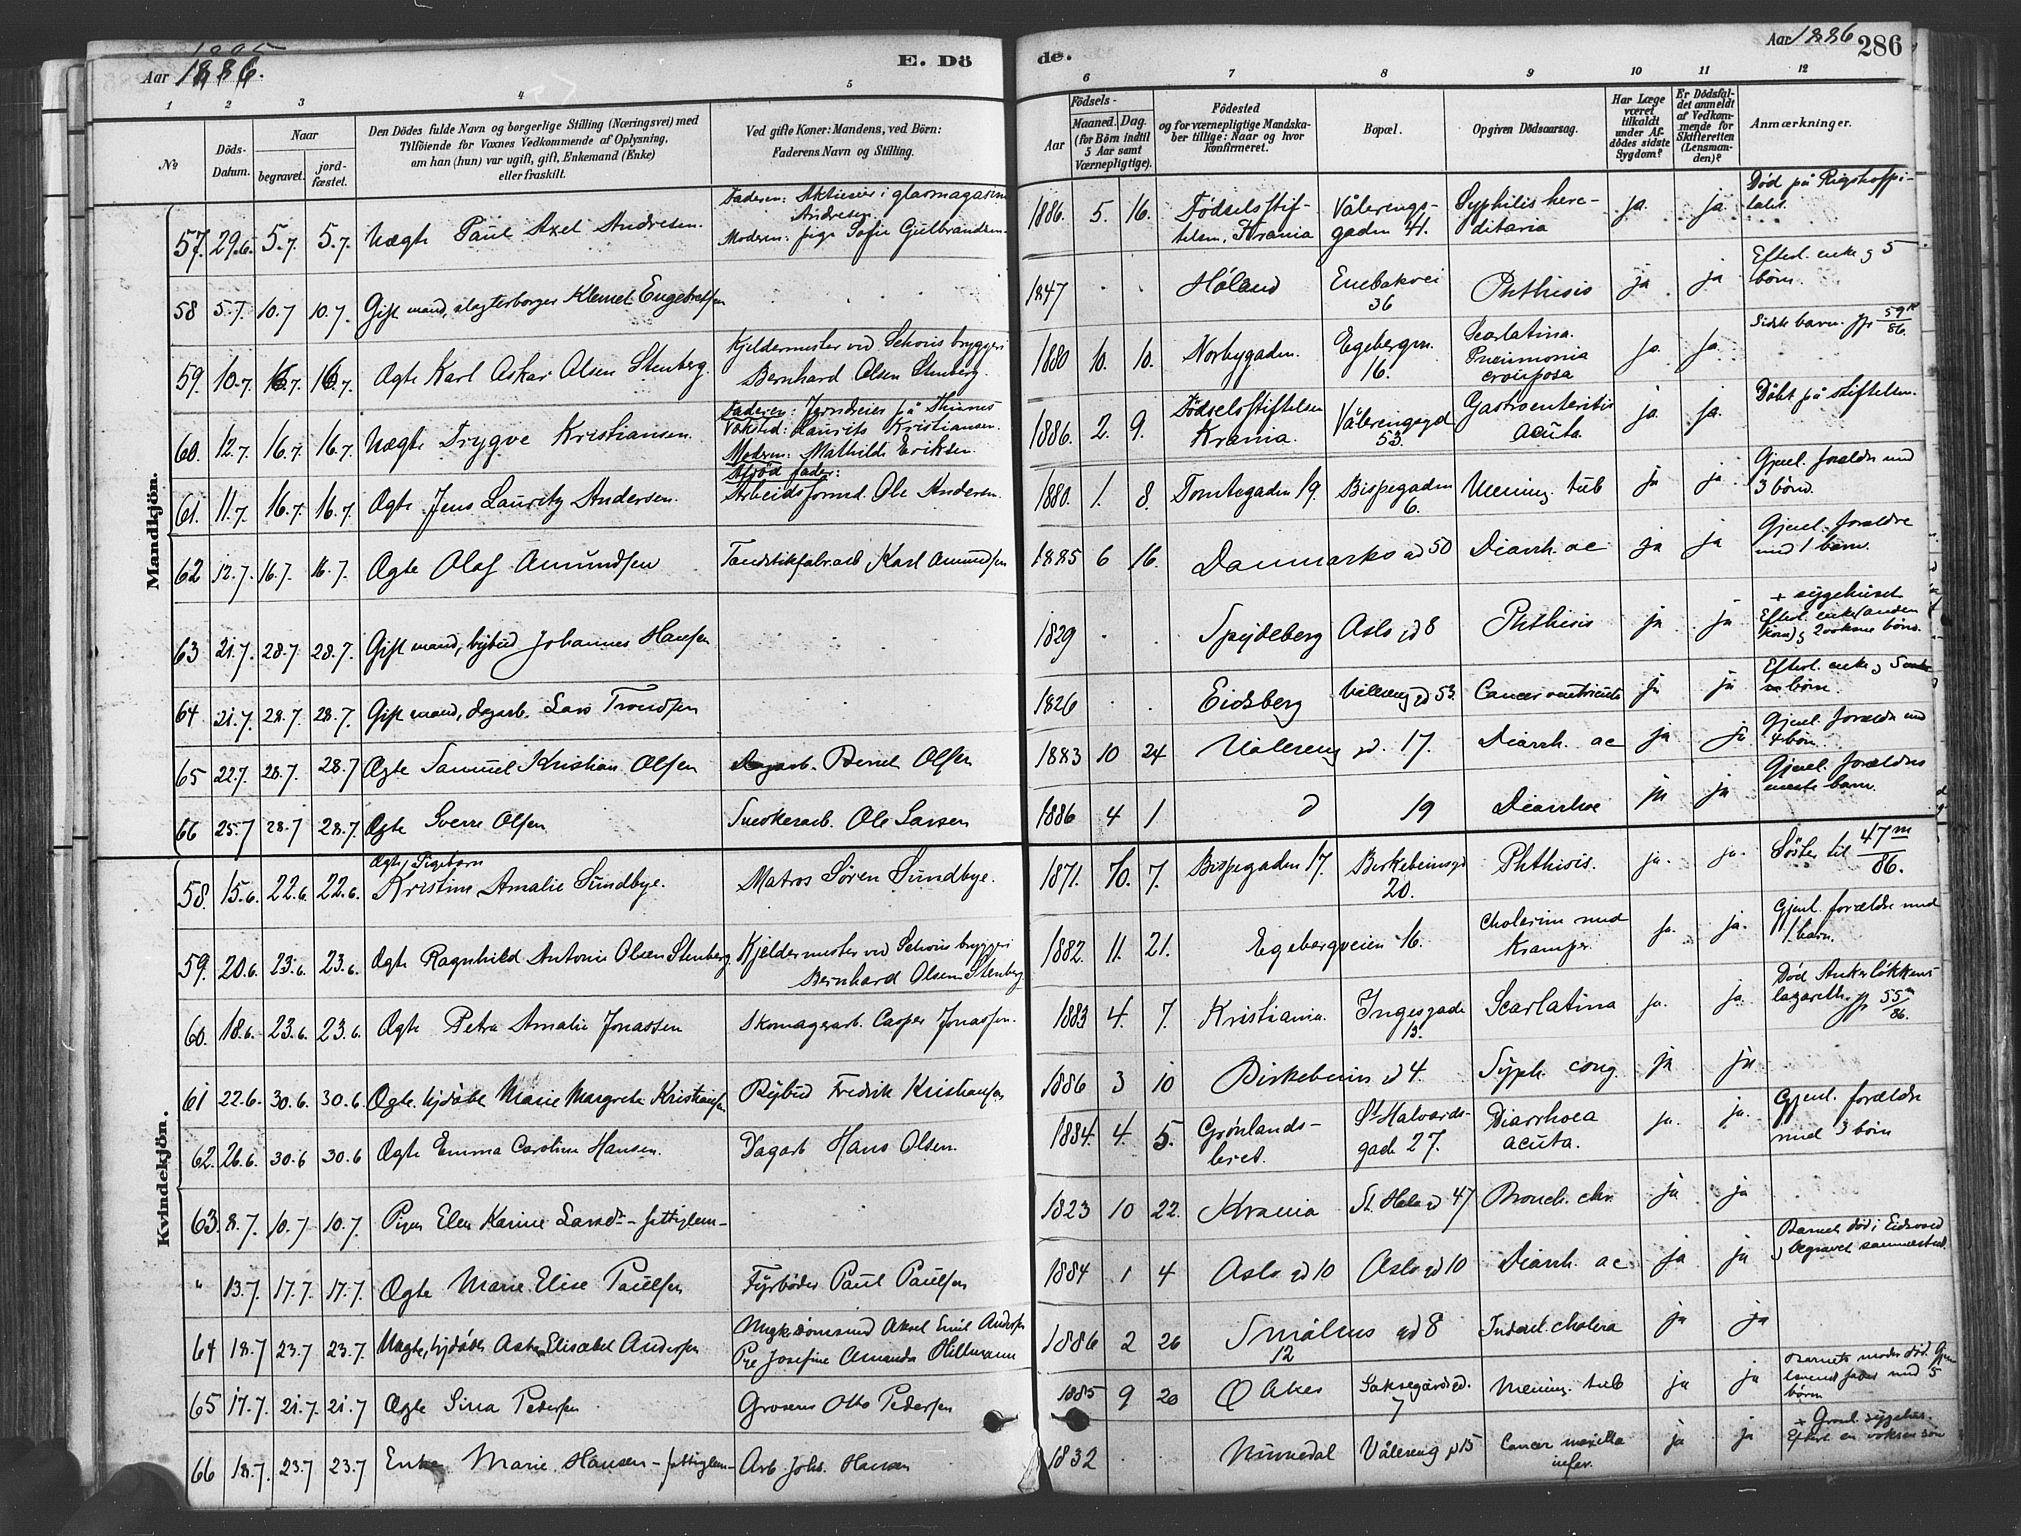 Aar 1886.
E. Dö
de.
Aar 1886
286
1 2 3 4 5 6 7 8 9 10 11 12
№
Döds-Datum.
Naar
begravet.
jord-fæstet.
Den Dödes fulde Navn og borgerlige Stilling (Næringsvei) med
Tilföiende for Voxnes Vedkommende af Oplysning,
om han (hun) var ugift, gift, Enkemand (Enke)
eller fraskilt.
Ved gifte Koner: Mandens, ved Börn:
Faderens Navn og Stilling.
Födsels-
Aar
Maaned. Dag.
(for Börn indtil
5 Aar samt
Værnepligtige).
Födested
og for værnepligtige Mandska-
ber tillige: Naar og hvor
konfirmeret.
Bopæl.
Opgiven Dödsaarsag.
Har Læge
været
tilkaldt
under Af-
dödes sidste
Sygdom?
Er Dödsfal-
det anmeldt
af Vedkom-
mende for
Skifteretten
(Lensman-
den)?
Anmærkninger.
Mandkjön.
57. 29.6. 5.7. 5.7. Uægte Paul Axel Andresen. Faderen: Aktiesier i glasmagasin Andresen. Moderen: pige Sofie Gulbrandsen. 1886. 5. 16. Födselsstif-telsen, Krania Vålerengs-gaden 41. Syphilis here-ditaria ja. ja Död på Rigshospi-talet.
58 5.7. 10.7 10.7. Gift mand, slagterborger Klemet Engebretsen 1847 Höland Enebakvei 36 Phthisis ja ja Efterl. enke og 5 börn.
59. 10.7. 16.7. 16.7. Ægte Karl Askar Olsen Stenberg. Kjeldermester ved Schous bryggeri Bernhard Olsen Stenberg. 1880 10. 10. Norbygaden. Egebergvn. 16. Scarlatina. Pneumonia crouposa ja. ja. Sidste barn. 59 86.
60. 12.7. 16.7. 16.7. Uægte Trygve Kristiansen. Faderen: Jerndreier på Thunes Værksted: Laurits Kristiansen. Moderen: Mathilde Eriksen. 1886. 2. 9. Födselsstiftelsen Krania. Vålerengsgd 53 Gastroenteritis acuta. ja. ja. Döbt på stiftelsen.
61. 11.7. 16.7. 16.7. Ægte Jens Lauritz Andersen. Afdöd fader: Arbeidsformd. Ole Andersen. 1880. 1. 8. Tomtegaden 19. Bispegaden 6. Mening. tub ja ja. Gjenl. forældre med 3 börn.
62 12.7. 16.7. 16.7. Ægte Olaf Amundsen Tændstikfabr.arb Karl Amundsen 1885 6 16. Danmarks gd 50 Diarrh. ac ja ja Gjenl. forældre med 1 barn.
63 21.7. 28.7 28.7. Gift mand, bybud Johannes Hansen 1829 Spydeberg Aslo gd 8 Phthisis ja ja + sygehuset Efterl. enke (anden kone) og 2 voksne börn.
64 21.7. 28.7. 28.7. Gift mand, dagarb. Lars Trondsen 1826 Eidsberg Vålereng gd 53. Cancer ventriculi ja ja Efterl. enke og 5 börn.
65 22.7. 28.7. 28.7 Ægte Samuel Kristian Olsen Dagarb. Bernt Olsen 1883 10 24 Vålereng gd. 17. Diarrh. ac ja ja Gjenl. forældre med 4 börn.
66 25.7 28.7 28.7. Ægte Sverre Olsen Snedkerarb. Ole Larsen 1886 4 1 19 Diarrhoe ja ja Gjenl. forældres eneste barn.
Kvindekjön.
58. 15.6. 22.6. 22.6. Ægte, Pigebarn Kristine Amalie Sundbye. Matros Sören Sundbye. 1871. 10. 7. Bispegaden 17. Birkebeinsgd 20. Phthisis. ja. ja. Söster til 47m 86.
59. 20.6. 23.6. 23.6. Ægte Ragnhild Antonie Olsen Stenberg. Kjeldermester ved Schous bryggeri Bernhard Olsen Stenberg 1882. 11. 21. Egebergveien 16. Cholerine med Kramper. ja. ja. Gjenl. forældre med 1 barn.
60. 18.6. 23.6. 23.6. Ægte Petra Amalie Jonassen Skomagerarb. Casper Jonassen. 1883 4. 7. Kristiania. Ingesgade 15. Scarlatina ja. ja. Död Ankerlökkens lazareth. 55m 86.
61 22.6. 30.6. 30.6. Ægte, hjdöbt Marie Margrete Kristiansen Bybud Fredrik Kristiansen 1886 3 10 Birkebeins gd 4. Syph. cong ja ja
62. 26.6. 30.6 30.6 Ægte Emma Caroline Hansen. Dagarb Hans Olsen. 1884. 4. 5. Grönlands-leret. St Halvards-gade 27. Diarrhoea acuta. ja. ja. Gjenl. forældre med 3 börn
63. 8.7. 10.7 10.7. Pigen Elen Karine Larsdtr - fattiglem - 1823 10 22. Krania St. Halv gd 47 Bronch. chr. ja ja
" 13.7. 17.7. 17.7. Ægte Marie Elise Paulsen Fyrböder Paul Paulsen 1884 1 4 Aslo gd 10 Aslo gd 10 Diarrh. ac ja ja Barnet död i Eidsvold og begravet sammesteds.
64 18.7 23.7 23.7. Uægte, hjdöbt Asta Elisabet Andersen Ungk. Aksel Emil Andersen Pge Josefine Amanda Hillmann 1886 2 26 Smålens gd 8 12 Indset. cholera ja ja
65 17.7. 21.7. 21.7 Ægte Sina Pedersen Groserer Otto Pedersen 1885 9 20 Ø Aker Saksegårds gd. 7 Mening. tub ja ja Barnets moder död. Gjenlevende fader med 5 börn
66 18.7. 23.7 23.7 Enke Marie Hansen - fattiglem - Arb Johs. Hansen 1832 Nannedal Vålereng gd 15 Cancer maxilla infer. ja ja + Grönl. sygehus. Efterl en voksen sön